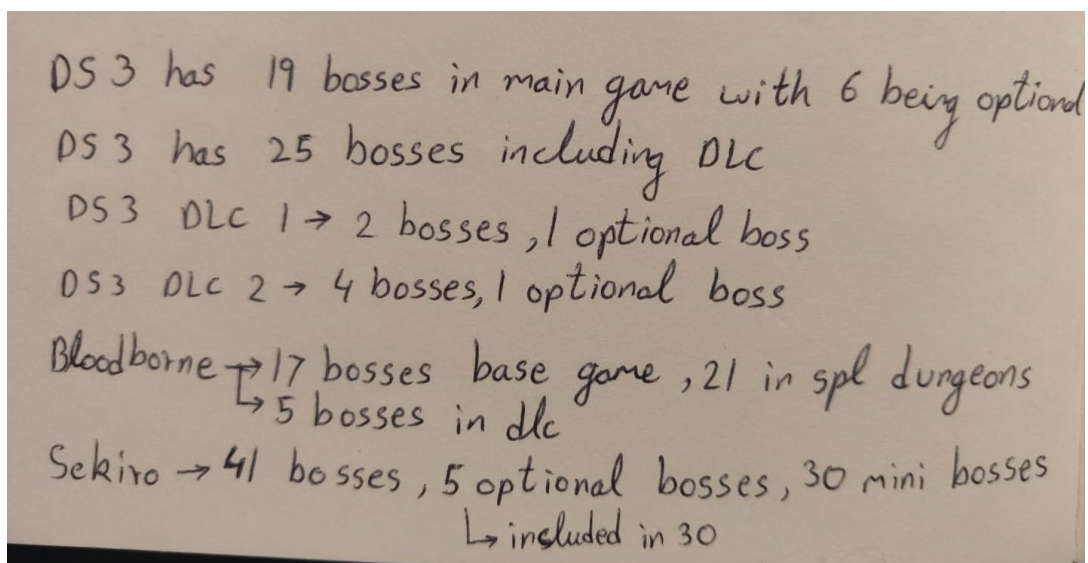 DS 3 has 19 bosses in main game with 6 being optional
DS 3 has 25 bosses including DLC
DS 3 DLC 1 → 2 bosses, 1 optional boss
DS 3 DLC 2 → 4 bosses, 1 optional boss
Bloodborne → 17 bosses base game, 21 in spl dungeons
↳ 5 bosses in dlc
Sekiro → 41 bosses, 5 optional bosses, 30 mini bosses
↳ included in 30